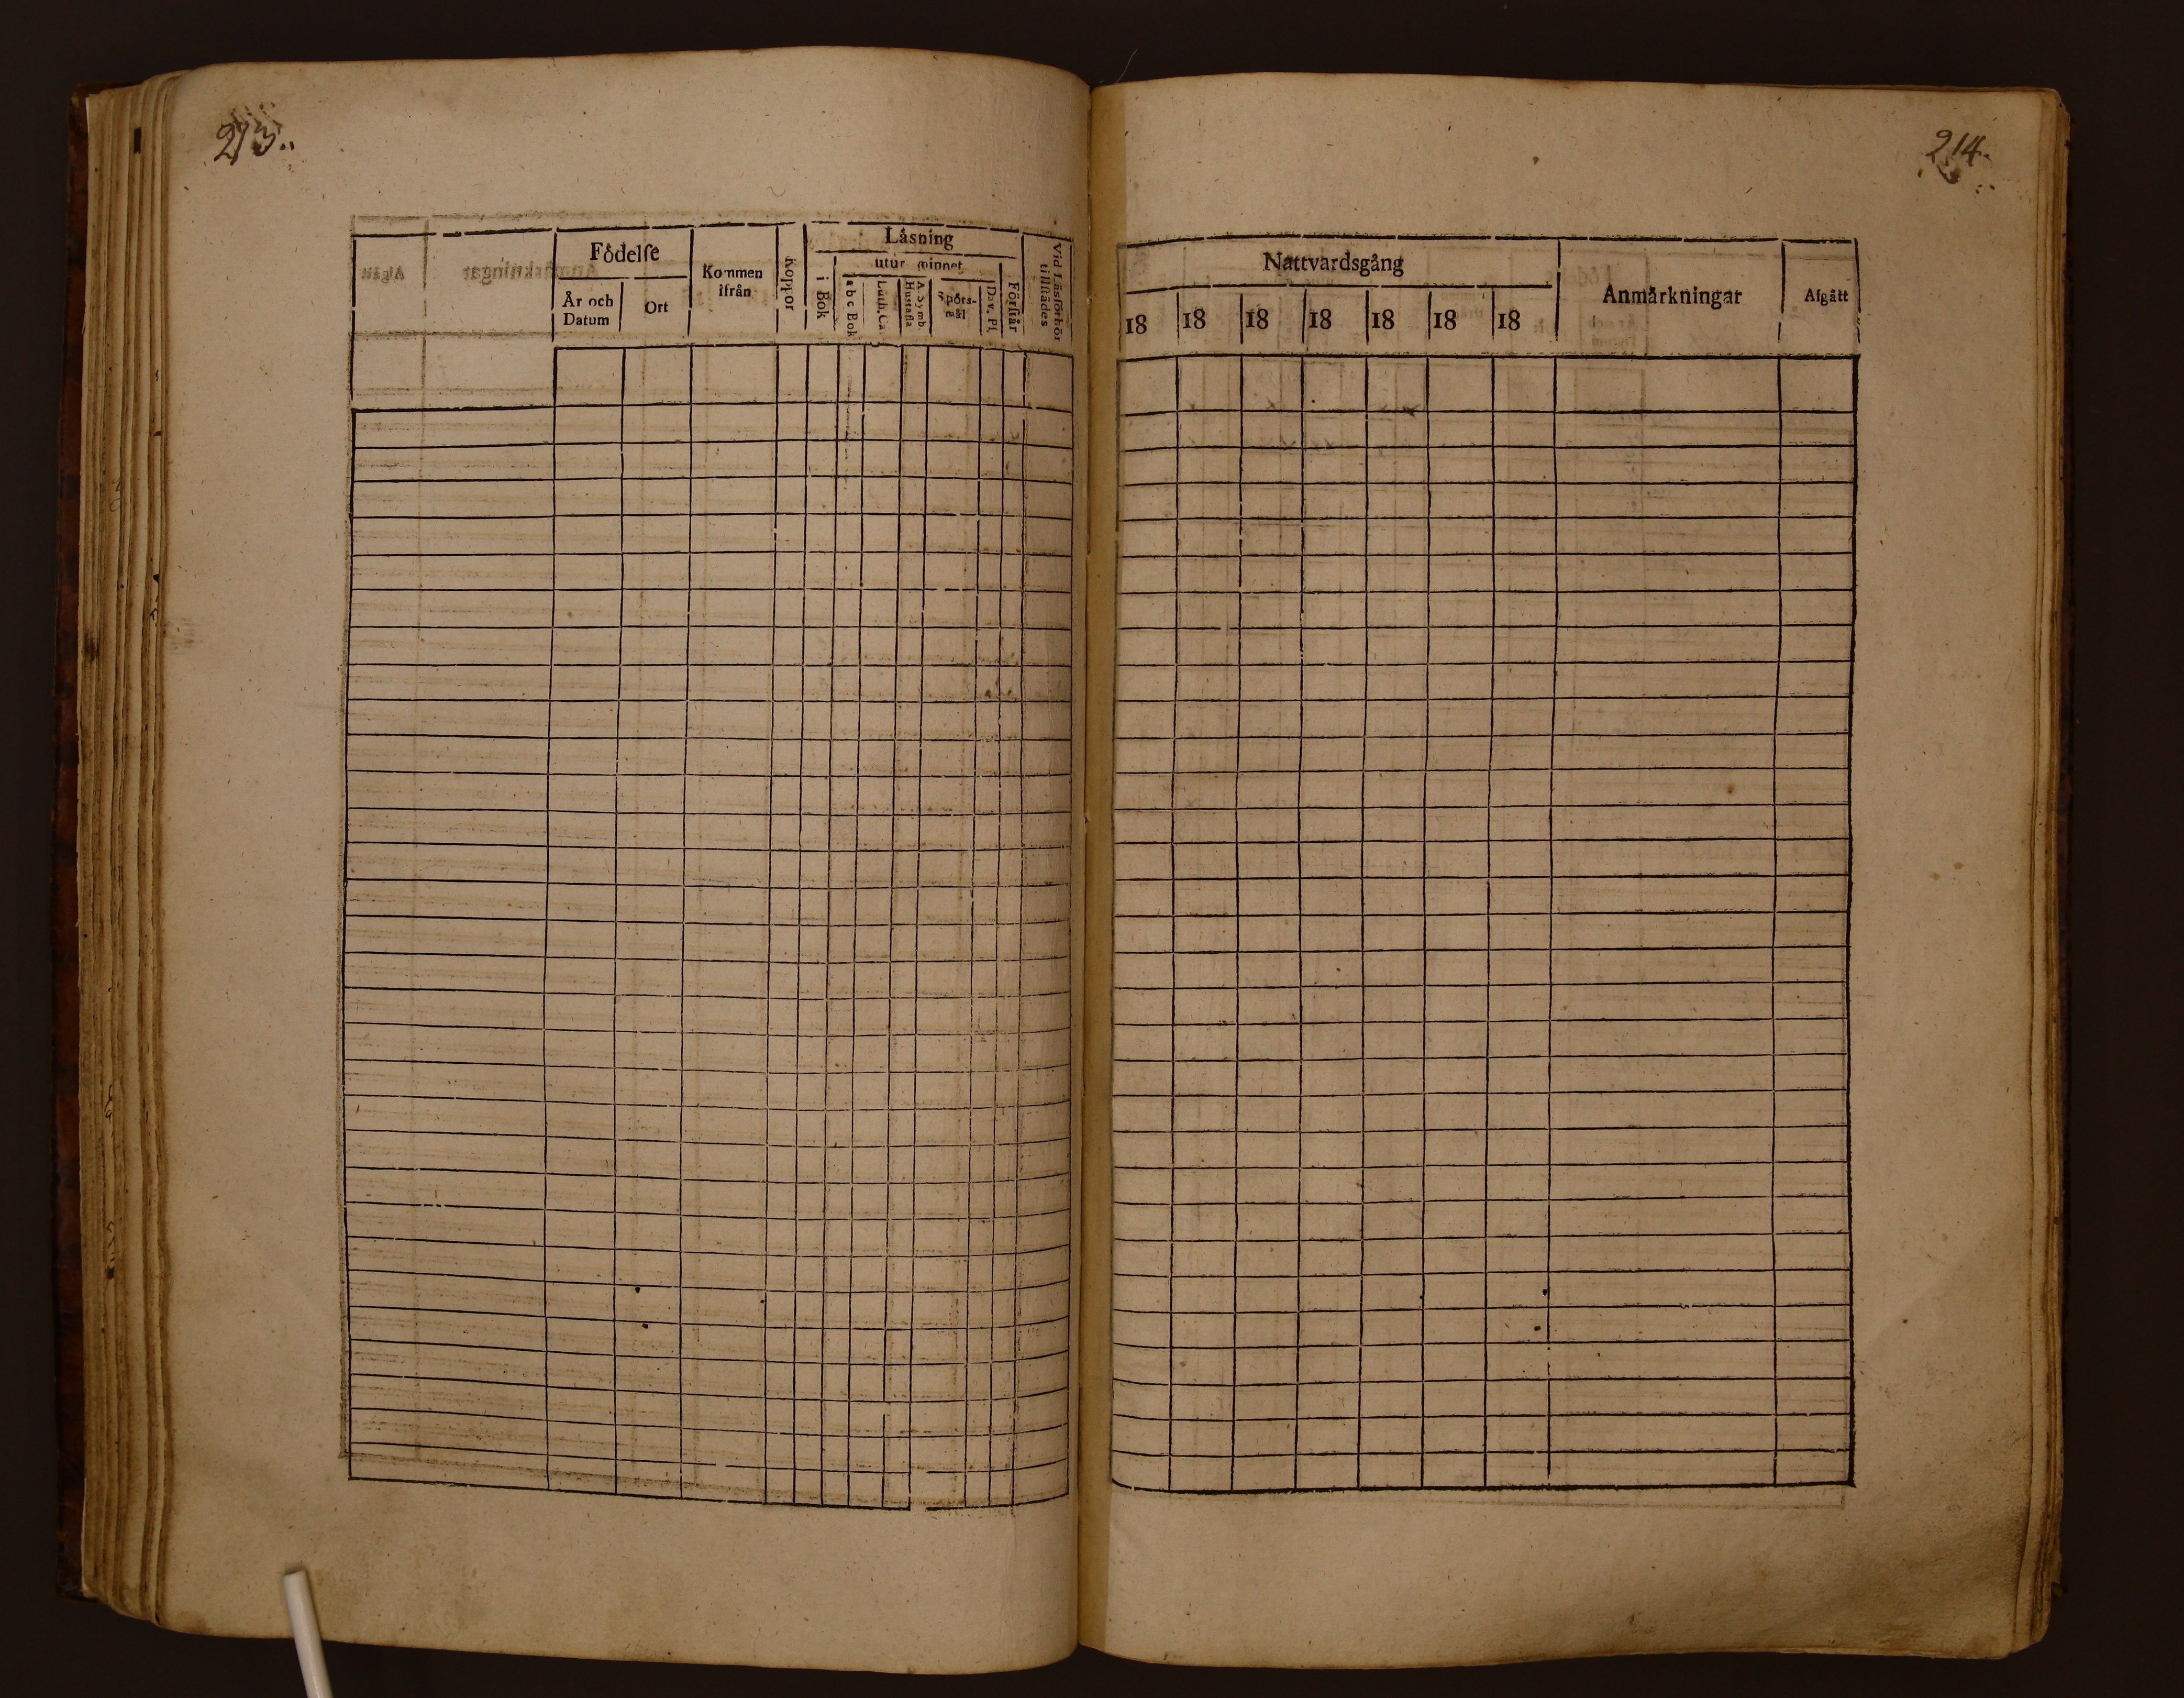 213.
Födelſe
År och Datum
Ort
Kommen ifrån
Koppor
Läsning
i Bok
utur minnet
a b c Bok
Luth. Ca.
A. Symb. Hustafla
Spörs-mål
Dav. Pſ.
Förſtår
Vid Läsförhör tillſtädes
214.
Nattvardsgång
18 18 18 18 18 18 18
Anmärkningar
Afgått